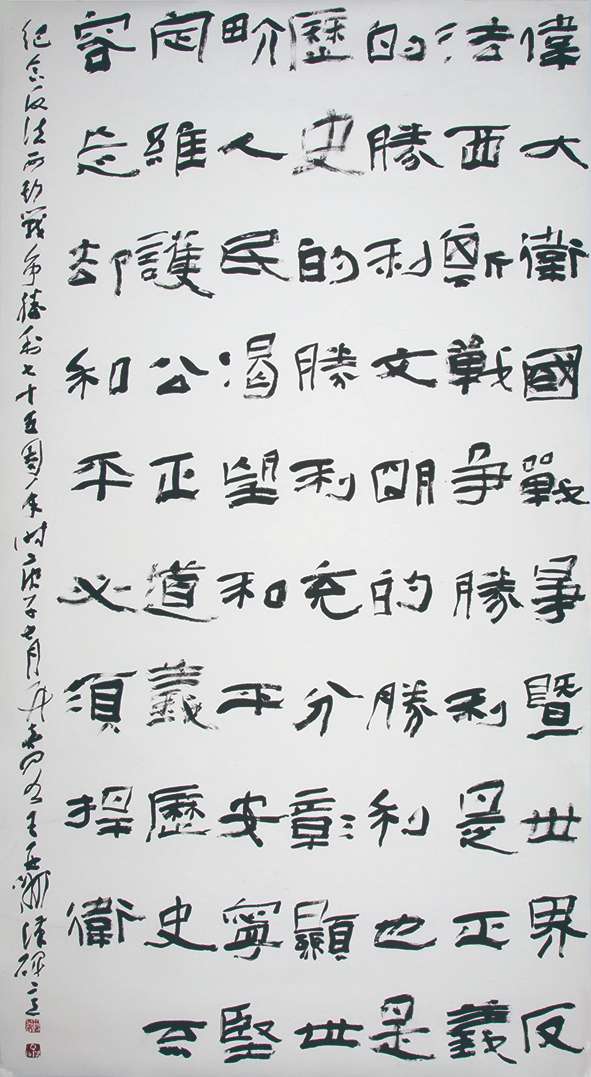 偉大衛國戰爭暨世界反
法西斯戰争勝利是正義
的勝利文明的勝利也是
歷史的勝利充分彰顯世
畍人民渴望和平安寧堅
定維護公正道義歷史不
容忘却和平必須捍衛
紀念反法西斯戰争勝利七十五周年時庚子七月王漢碑意